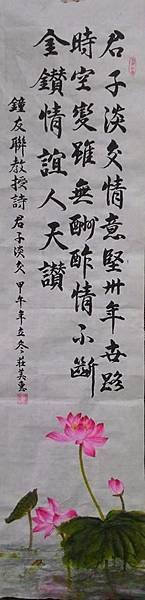 君子淡交情意堅卅年世路
時空變雖無酬酢情不斷
金鑽情誼人天讚
鐘友聯教授詩君子淡交甲午年立冬莊美惠